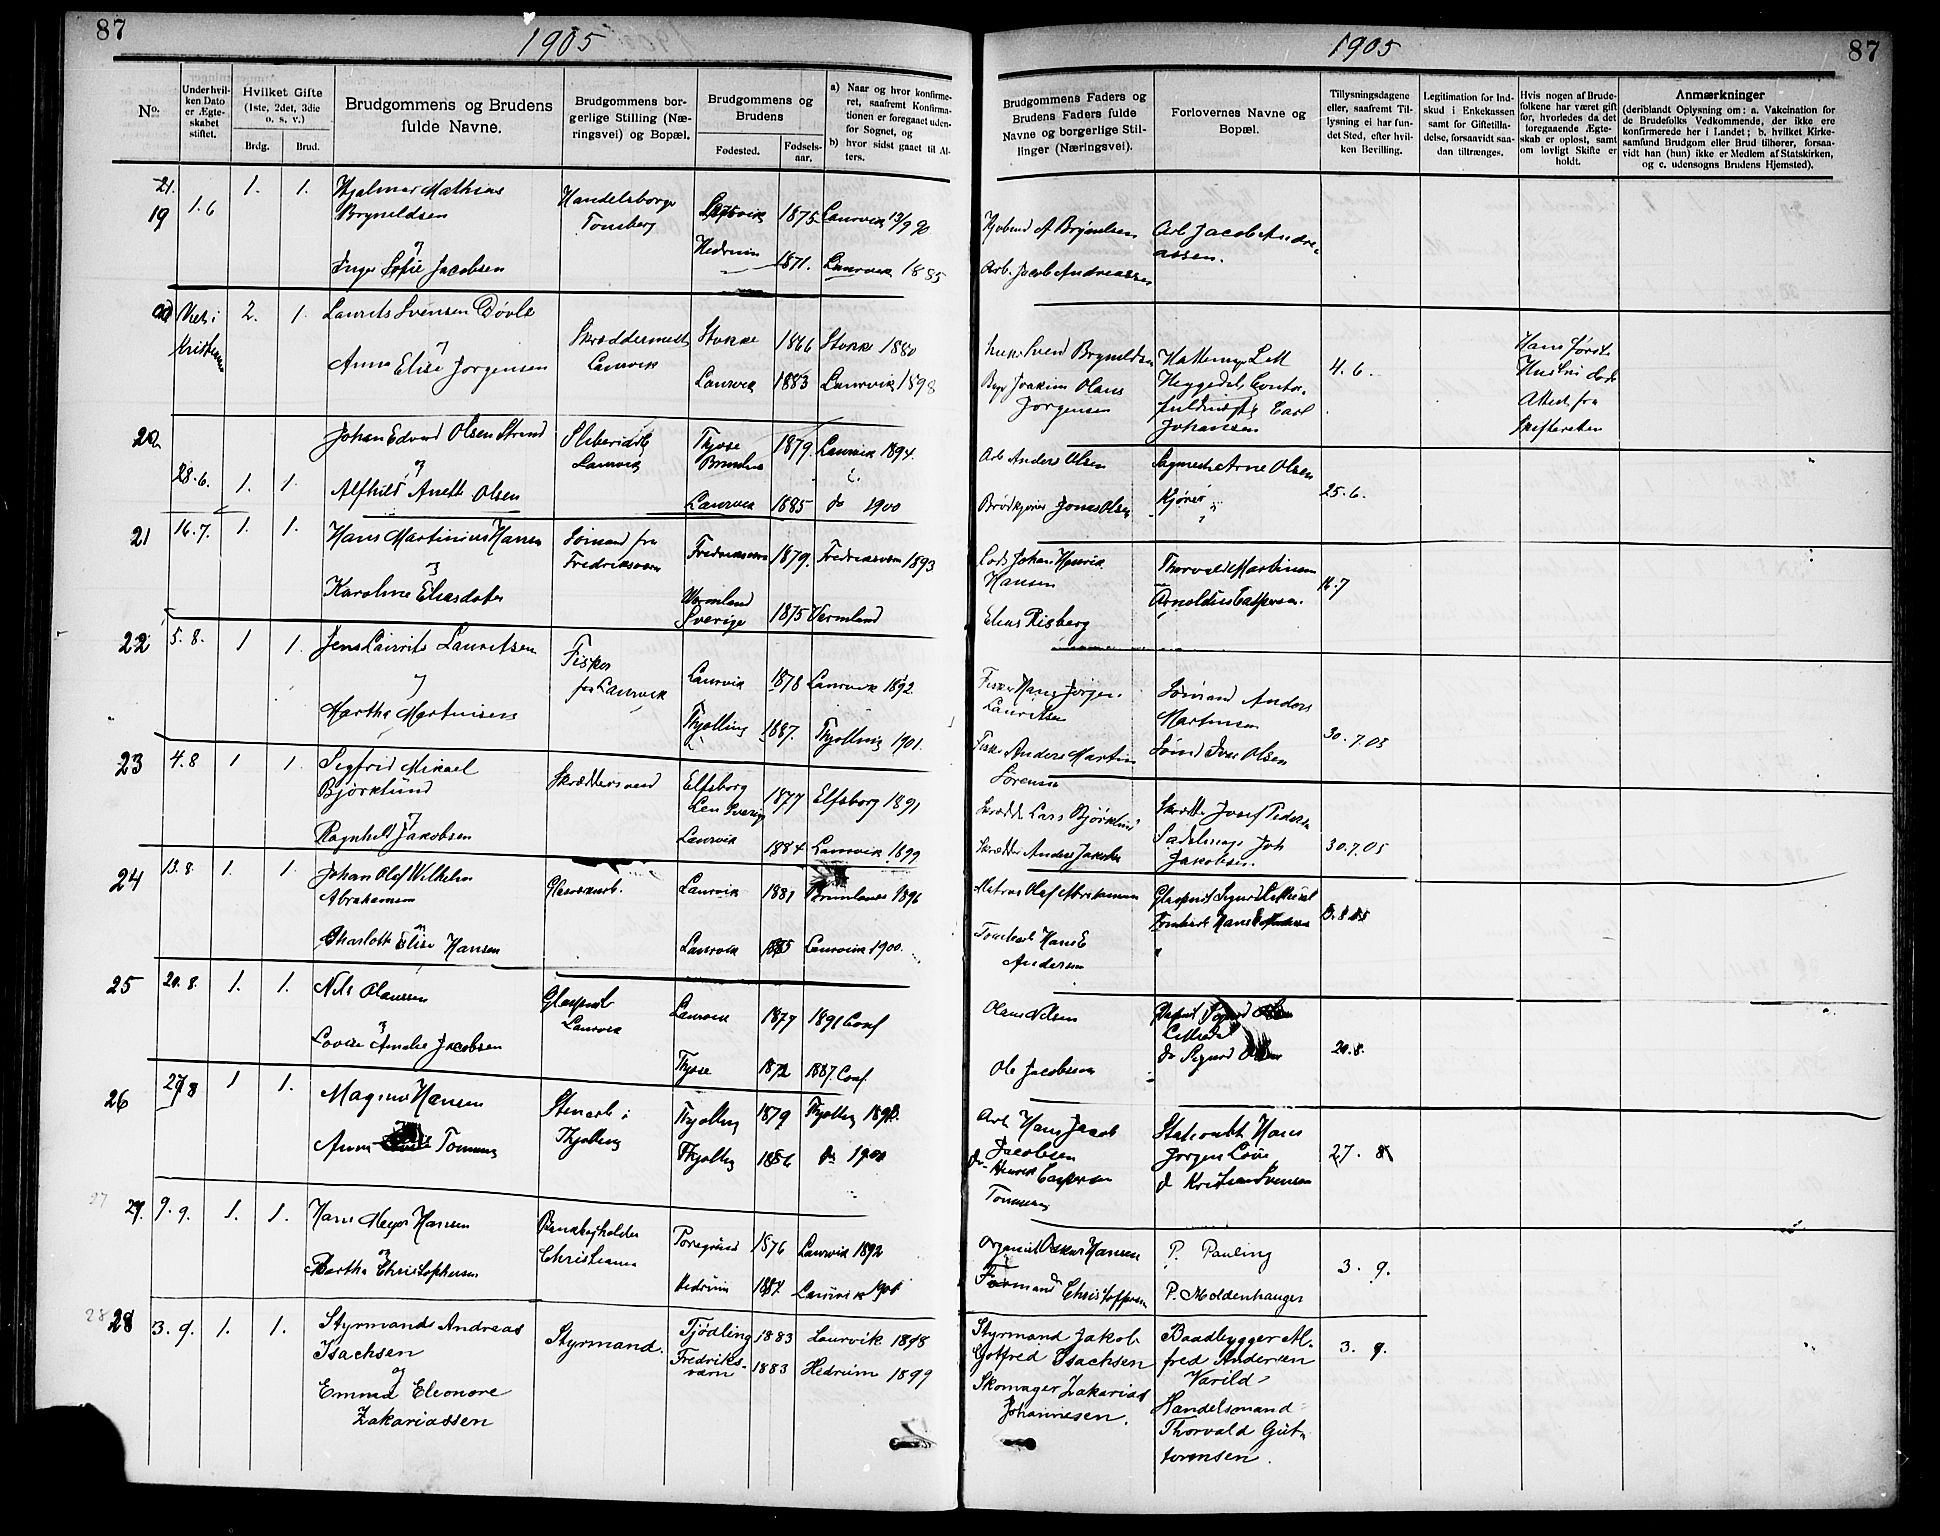 87
1905
No.
Under hvil-
ken Dato
er Ægte-
skabet
stiftet.
Hvilket Gifte
(1ste, 2det, 3die
o. s. v.)
Brdg.
Brud.
Brudgommens og Brudens
fulde Navne.
Brudgommens bor-
gerlige Stilling (Næ-
ringsvei) og Bopæl.
Brudgommens og
Brudens
Fødested.
Fødsels-
aar.
a) Naar og hvor konfirme-
ret, saafremt Konfirma-
tionen er foregaaet uden-
for Sognet, og
b) hvor sidst gaaet til Al-
ters.
21.
19
1.6
1.
1.
Hjalmar Mathias
Bryneldsen
og
Inga Sofie Jacobsen
Handelsborger
Tønsberg
Laurvik 1875 Laurvik 13/9 90
Hedrum 1871. Laurvik 1885
Viet i
Kristiania
2.
1.
Laurits Svensen Bøvle
og
Anna Elise Jørgensen
Skræddermester
Laurvik
Stokke 1866 Stokke 1880
Laurvik 1883 Laurvik 1898
20
28.6.
1.
1.
Johan Edvard Olsen Strand
og
Alfhild Anette Olsen
Laurvik
Thjose
Brunlanes
1879. Laurvik 1894.
Laurvik 1885 do 1900
21
16.7.
1.
1.
Hans Martinius Hansen
og
Karoline Eliasdater
Sømand fra
Fredriksværn
Fredriksværn 1879. Fredriksværn 1893
Vermland
Sverige 1875 Vermland
22
5.8.
1
1.
Jens Laurits Lauritsen
og
Martha Martinsen
Fisker
fra Laurvik
Laurvik 1878 Laurvik 1892.
Thjølling 1887. Thjølling 1901.
23
4.8
1
1.
Sigfrid Mikael
Bjørklund
og
Ragnhild Jakobsen
Skræddersvend
Elfsborg
Len Sverige
1877 Elfsborg 1891
Laurvik 1884 Laurvik 1899
24
13.8.
1.
1.
Johan Olaf Wilhelm
Abrahamsen
og
Charlotte Elise Hansen
Glasværksarb.
Laurvik 1881 Brunlanes 1896
Laurvik 1885 Laurvik 1900.
25
20.8.
1.
1.
Nils Olaussen
og
Lovise Amalie Jacobsen
Glaspust
Laurvik
Laurvik 1877 1891 Conf
Thjose 1872 1887. Conf.
26
27.8
1
1.
Magnus Hansen
Anna Tommesen
Stenarb i
Thjølling
Thjølling 1879 Thjølling 1892.
Thjølling 1886 do 1900
27
27.
9.9.
1.
1.
Hans Meyer Hansen
og
Martha Christophersen
Bankbogholder
Christiania
Porsgrund 1876 Laurvik 1892
Hedrum 1884. Laurvik 1901
28
28
3.9.
1.
1.
Styrmand Andreas
Isachsen
og
Emma Eleonore
Zakariassen
Styrmand.
Tjødling 1883 Laurvik 1898
Fredriks-
værn 1883 Hedrum 1899
1905
87
Brudgommens Faders og
Brudens Faders fulde
Navne og borgerlige Stil-
linger (Næringsvei).
Forlovernes Navne og
Bopæl.
Tillysningsdagene
eller, saafremt Til-
lysning ei har fun-
det Sted, efter hvil-
ken Bevilling.
Legitimation for Ind-
skud i Enkekassen
samt for Giftetilla-
delse, forsaavidt saa-
dan tiltrænges.
Hvis nogen af Brude-
folkene har været gift
før, hvorledes da det
foregaaende Ægte-
skab er opløst, samt
om lovligt Skifte er
holdt.
Anmærkninger
(deriblandt Oplysning om: a. Vakcination for
de Brudefolks Vedkommende, der ikke ere
konfirmerede her i Landet; b. hvilket Kirke-
samfund Brudgom eller Brud tilhører, forsaa-
vidt han (hun) ikke er Medlem af Statskirken,
og c. udensogns Brudens Hjemsted).
A Bryneldsen
Arb. Jacob Andreassen
Arb Jacob Andre-
assen.
Sven Bryneldsen
Joakim Olaus
Jørgensen
Hattemager
Heggedal,
Carl
Johansen
4.6.
Hans første
Hustru død
Attest fra
Skifteretten
Arb Anders Olsen
Brødkjører Jonas Olsen
Arne Olsen
Kjører
25.6.
Lods Johan Henrik
Hansen
Elias Risberg
Thorvald Martinsen
Arnoldus Caspersen.
16.7
Fisker Hans Jørgen
Lauritsen
Fisker Anders Martin
Sørensen
Sømand Anders
Martinsen
Sømd Iver Olsen
30.7.05
Skrædder Lars Bjørklund
Skrædder Anders Jakobsen
Skrædder Josef Pedersen
Sadelmager Joh
Jakobsen.
30.7.05
Matros Olaf Abrahamsen
Tomtearb Hans E
Andersen
13.8.05
Olaus Nilsen
Ole Jacobsen
do Sigurd Olsen
20.8.
Arb Hans Jacob
Jacobsen
do Henrik Caspersen
Tommesen
Hans
Jørgen Løve
do Kristian Svensen
27.8
Organist Oskar Hansen
Formand Christoffersen
P. Pauling
P. Moldenhauger
3.9.
Styrmand Jakob
Gotfred Isachsen
Skomager Zakarias
Johannesen.
Baadbygger Al-
fred Andersen
Varild
Handelsmand
Thorvald Gut-
tormsen.
3.9.